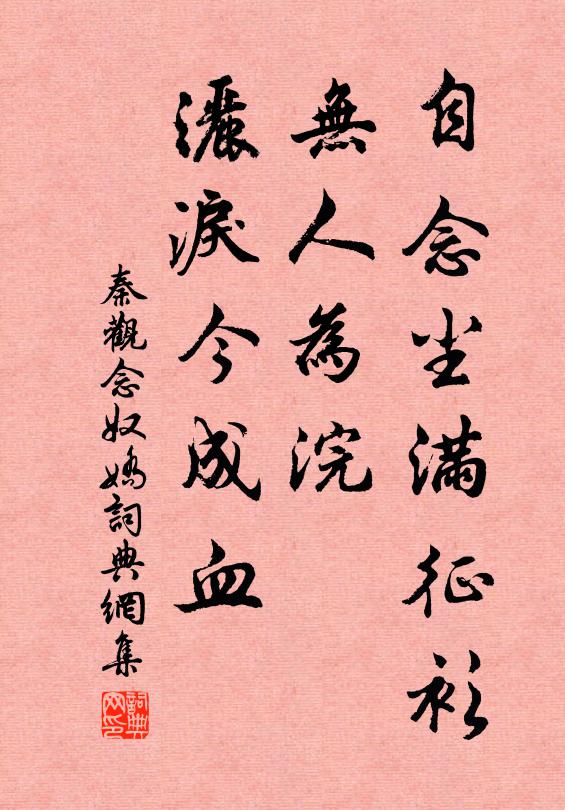 自念尘滿征衫
無人為浣
灑淚今成血
秦觀念奴嬌詞典網集
詞典网印